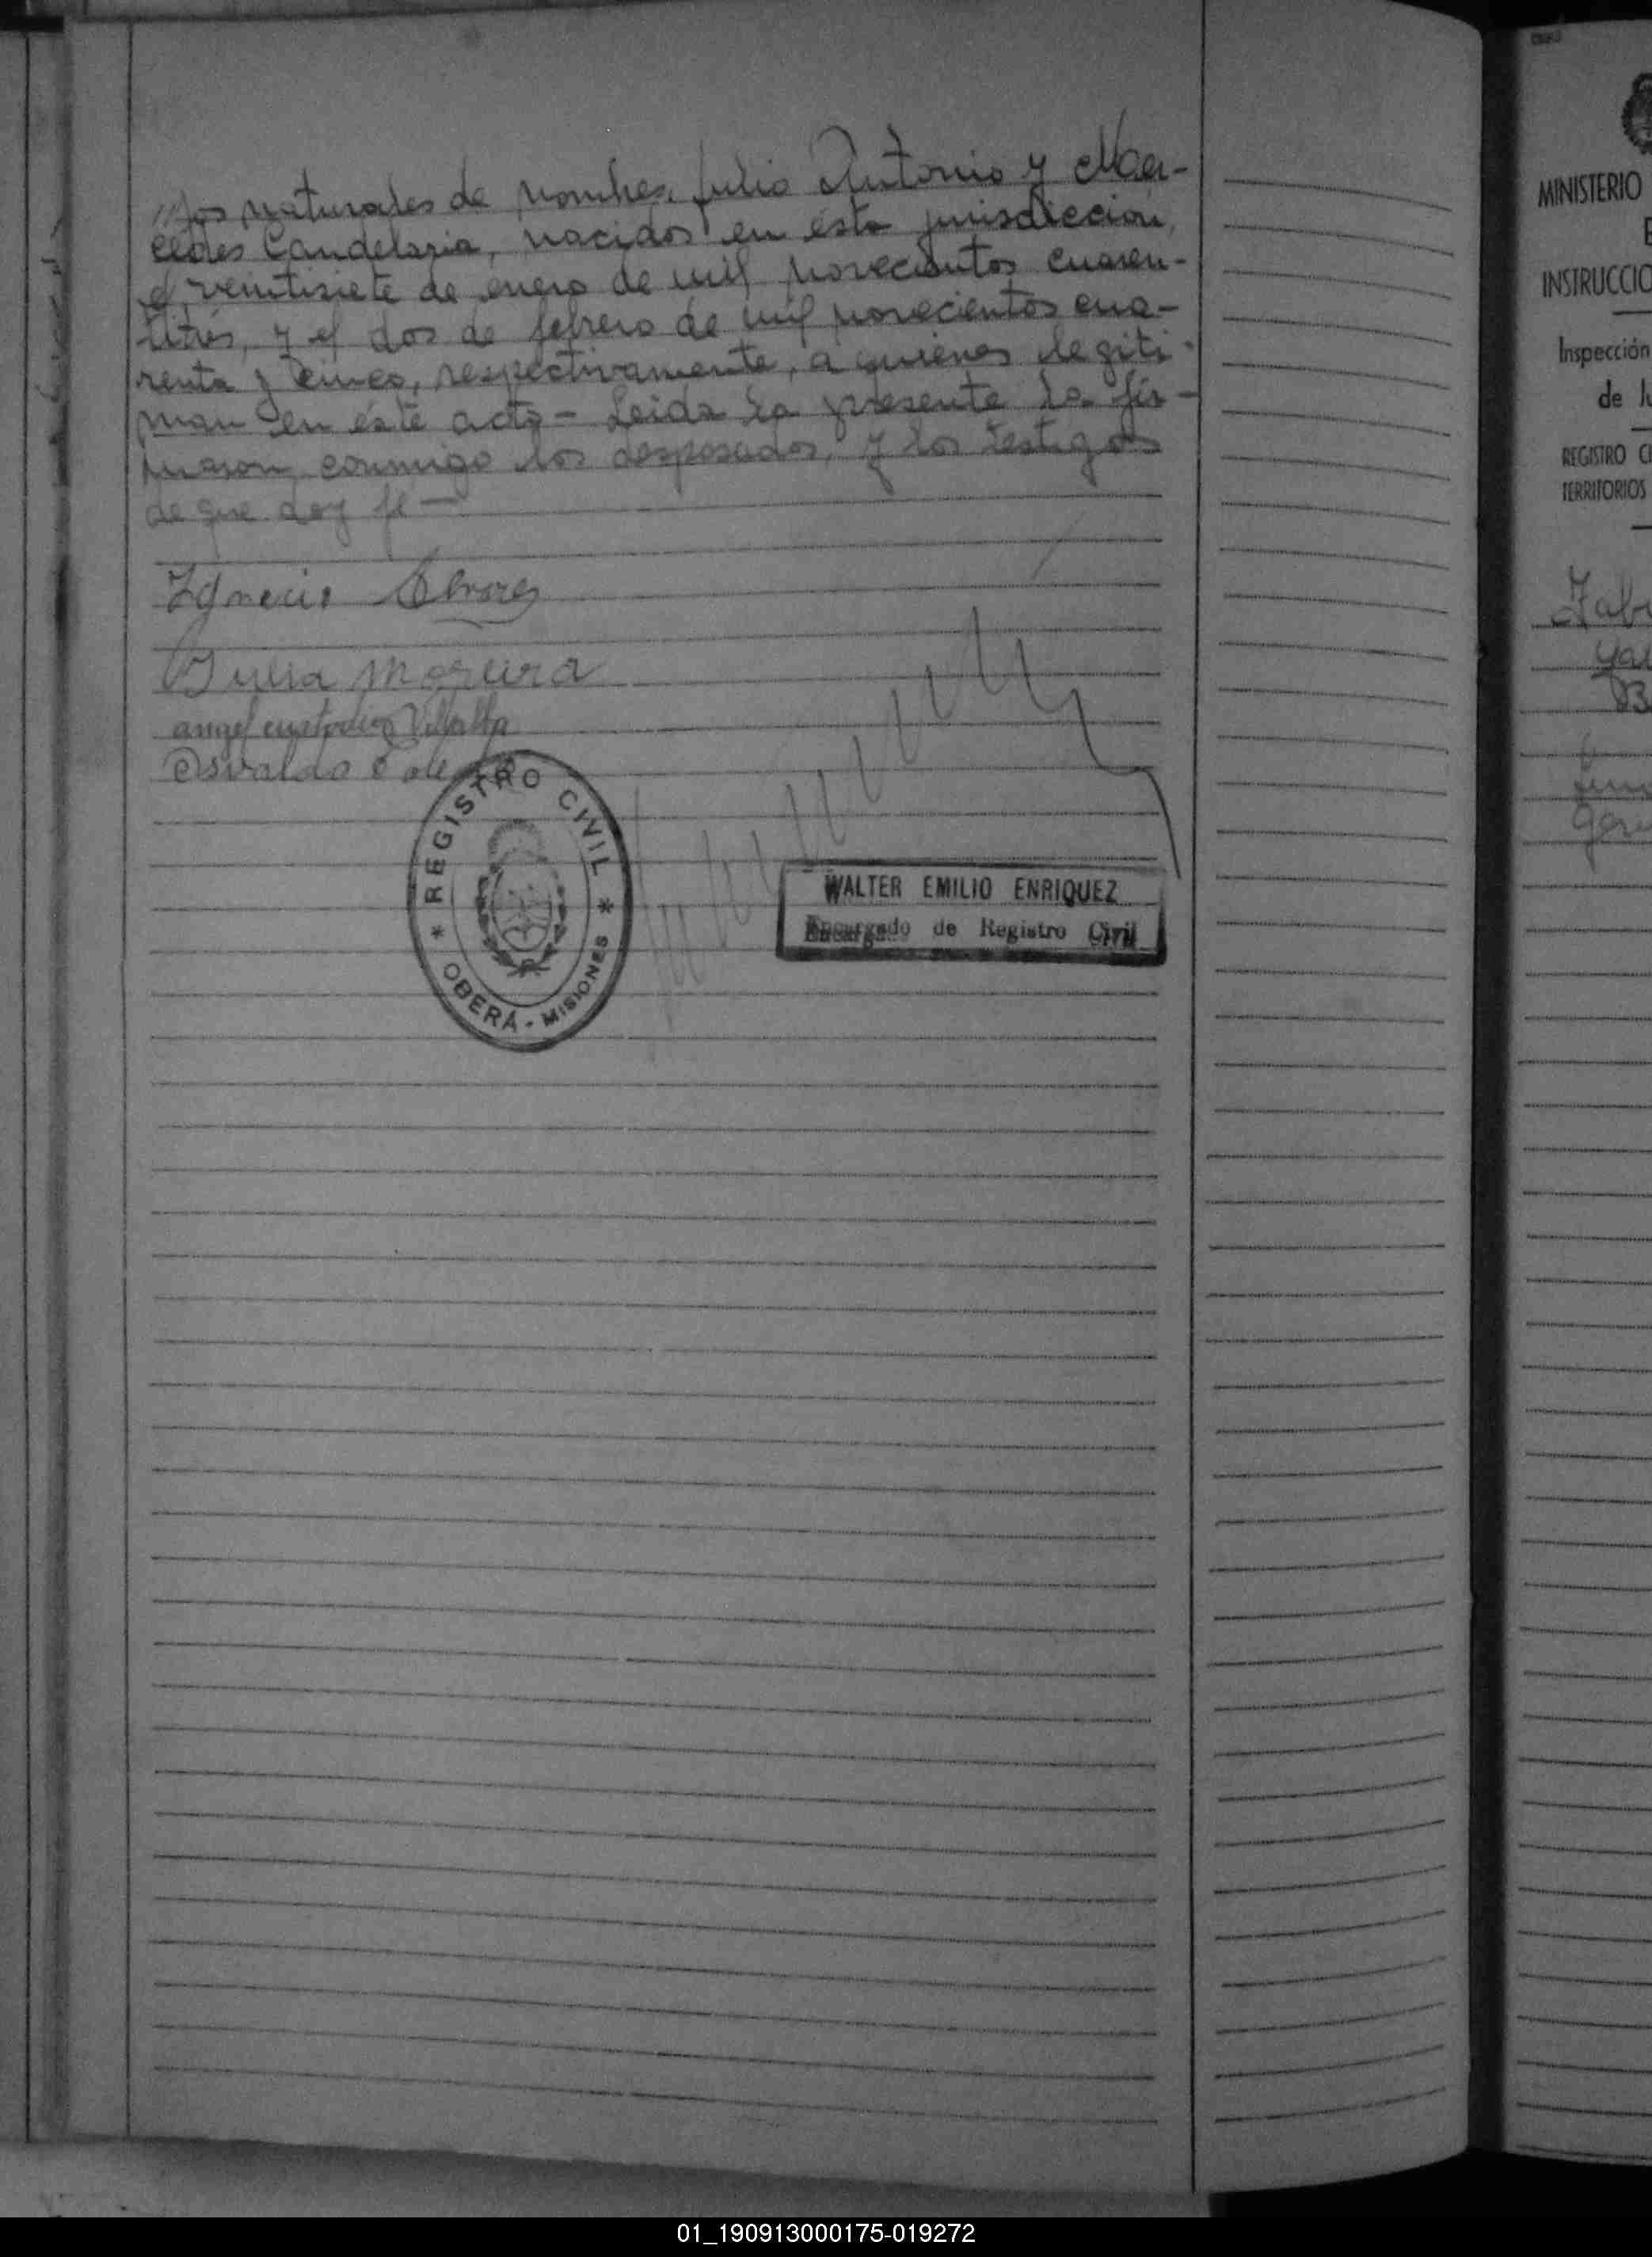 ///jos naturales de nombres, Julio Antonio y Mer-
cedes Candelaria, nacidos en ésta jurisdicción,
el veintisiete de enero de mil novecientos cuaren-
titrés, y el dos de febrero de mil novecientos cua-
renta y cinco, respectivamente, a quienes legiti-
man en éste acto - Leida la presente la fir-
maron conmigo los desposados, y los testigos
de que doy fé —
Ignacio
Julia Moreira
angel custodio Villalba
Osvaldo
REGISTRO CIVIL
* OBERÁ - MISIONES *
WALTER EMILIO ENRIQUEZ
Encargado de Registro Civil
MINISTERIO
INSTRUCCIO
Inspección
de
REGISTRO CI
TERRITORIOS
01_190913000175-019272